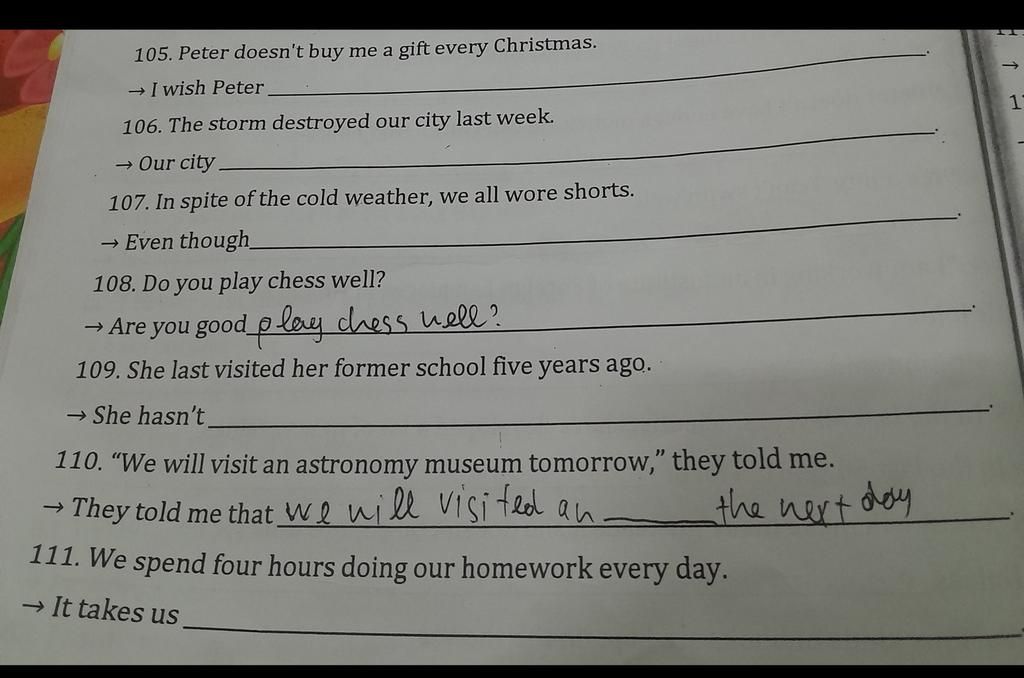 105. Peter doesn't buy me a gift every Christmas.
→ I wish Peter ______.
106. The storm destroyed our city last week.
→ Our city ______.
107. In spite of the cold weather, we all wore shorts.
→ Even though______.
108. Do you play chess well?
→ Are you good play chess well? .
109. She last visited her former school five years ago.
→ She hasn't ______.
110. “We will visit an astronomy museum tomorrow,” they told me.
→ They told me that we will visited an ______ the next day .
111. We spend four hours doing our homework every day.
→ It takes us ______.